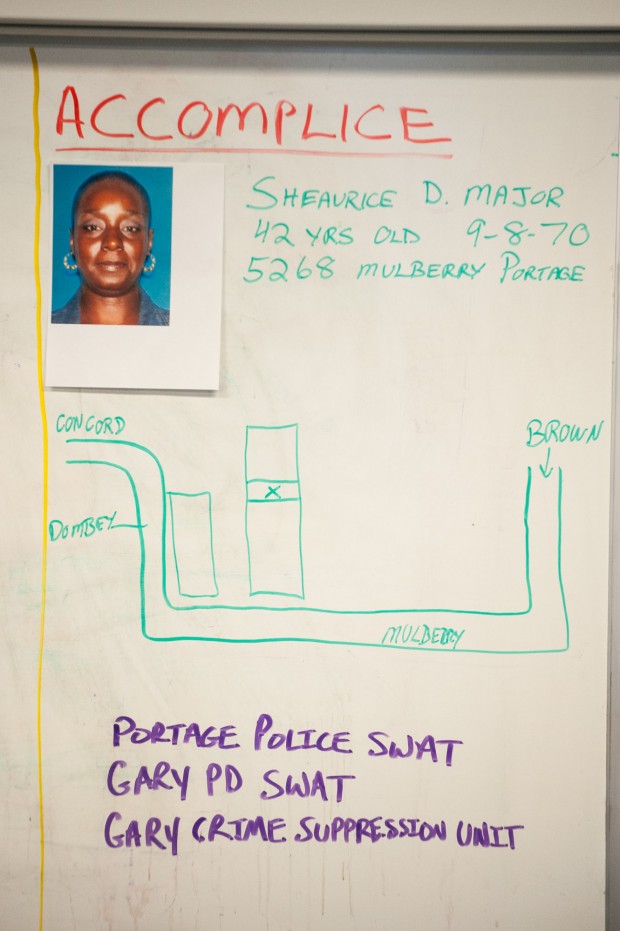 ACCOMPLICE
SHEAURICE D. MAJOR
42 YRS OLD 9-8-70
5268 MULBERRY PORTAGE
CONCORD
BROWN
X
DOMBEY
MULBERRY
PORTAGE POLICE SWAT
GARY PD SWAT
GARY CRIME SUPPRESSION UNIT